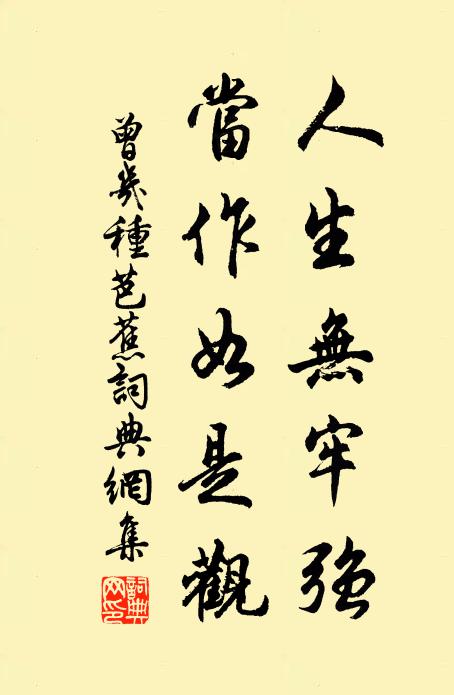 人生無牢強
當作如是觀
曾幾種芭蕉詞典網集
詞典網印